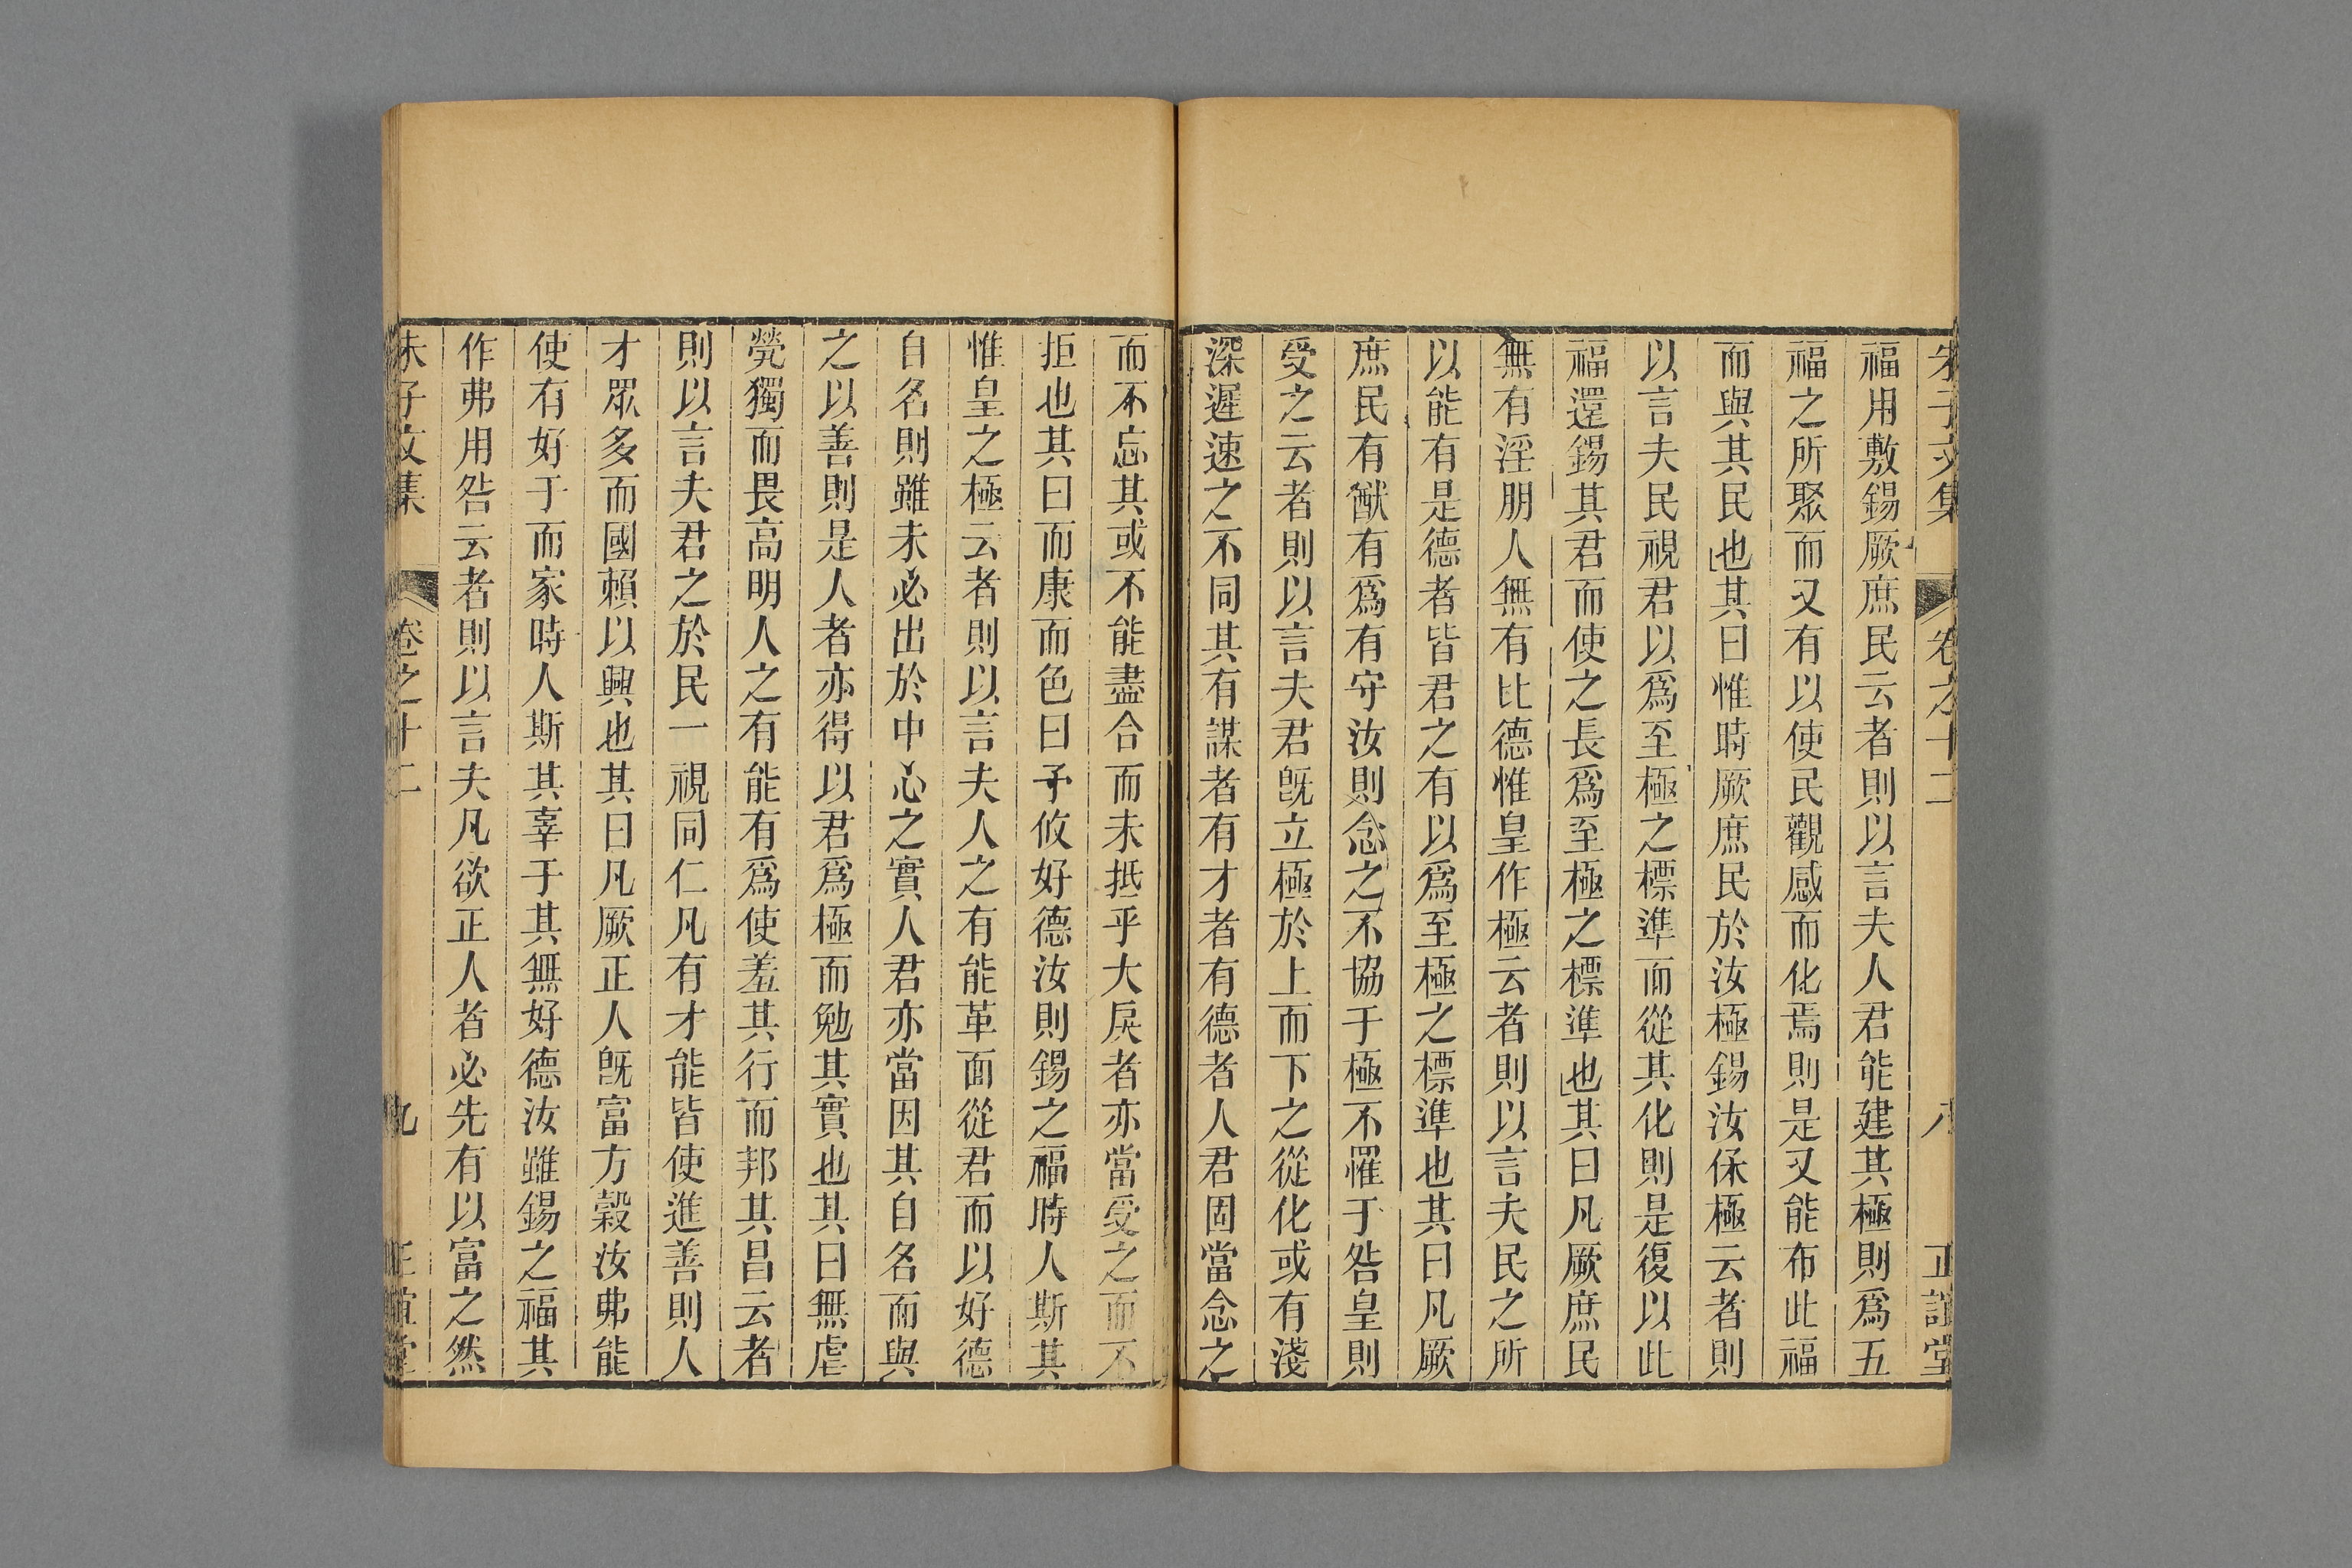 朱子文集 卷之十二 八 正誼堂
福用敷錫厥庶民云者則以言夫人君能建其極則爲五
福之所聚而又有以使民觀感而化焉則是又能布此福
而與其民也其曰惟時厥庶民於汝極錫汝保極云者則
以言夫民視君以爲至極之標準而從其化則是復以此
福還錫其君而使之長爲至極之標準也其曰凡厥庶民
無有淫朋人無有比德惟皇作極云者則以言夫民之所
以能有是德者皆君之有以爲至極之標準也其曰凡厥
庶民有猷有爲有守汝則念之不協于極不罹于咎皇則
受之云者則以言夫君旣立極於上而下之從化或有淺
深遲速之不同其有謀者有才者有德者人君固當念之
而不忘其或不能盡合而未抵乎大戾者亦當受之而不
拒也其曰而康而色曰予攸好德汝則錫之福時人斯其
惟皇之極云者則以言夫人之有能革面從君而以好德
自名則雖未必出於中心之實人君亦當因其自名而與
之以善則是人者亦得以君爲極而勉其實也其曰無虐
煢獨而畏高明人之有能有爲使羞其行而邦其昌云者
則以言夫君之於民一視同仁凡有才能皆使進善則人
才眾多而國賴以興也其曰凡厥正人旣富方穀汝弗能
使有好于而家時人斯其辜于其無好德汝雖錫之福其
作弗用咎云者則以言夫凡欲正人者必先有以富之然
朱子文集 卷之十二 九 正誼堂